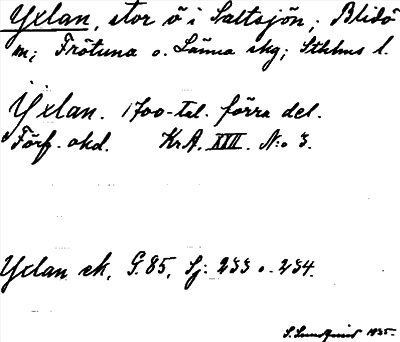 Yxlan, stor ö i Saltsjön; Blidö
m; Frötuna o. Länna skg; Sthlms l.
Yxlan. 1700-tal. förra del.
Förf. okd. KrA. XIII. N:o 3.
Yxlan sk. G. 85, Sj: 233 o. 234.
S. Lundquist 1935.